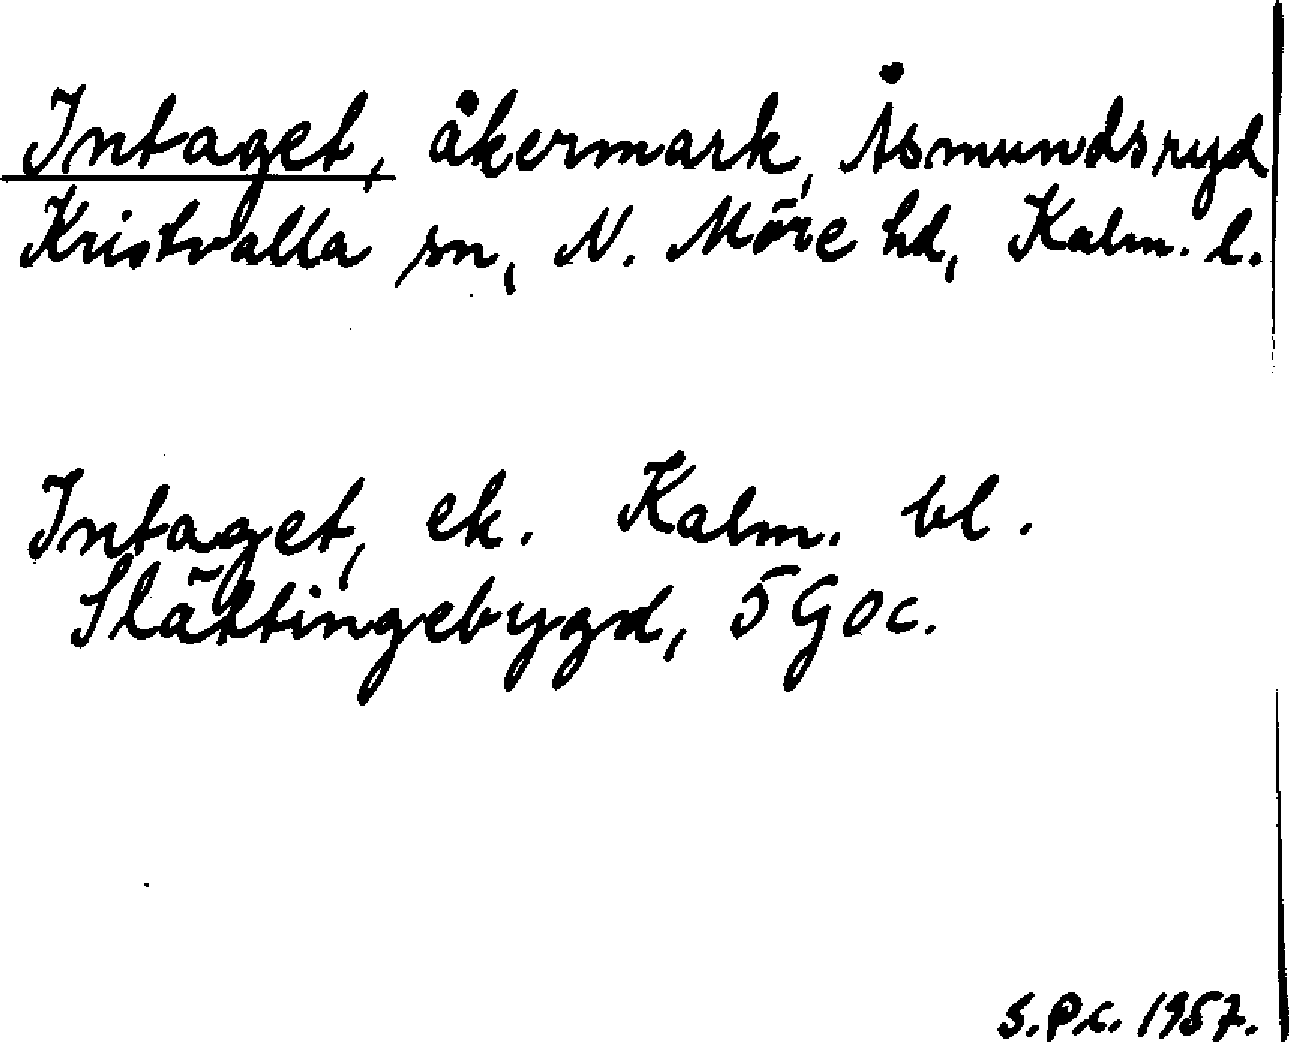 Intaget, åkermark, Åsmundsryd
Kristvalla sn, N. Möre hd, Kalm. l.
Intaget, ek. Kalm. bl.
Slättingebygd, 5 G o c.
S.P.L. 1957.